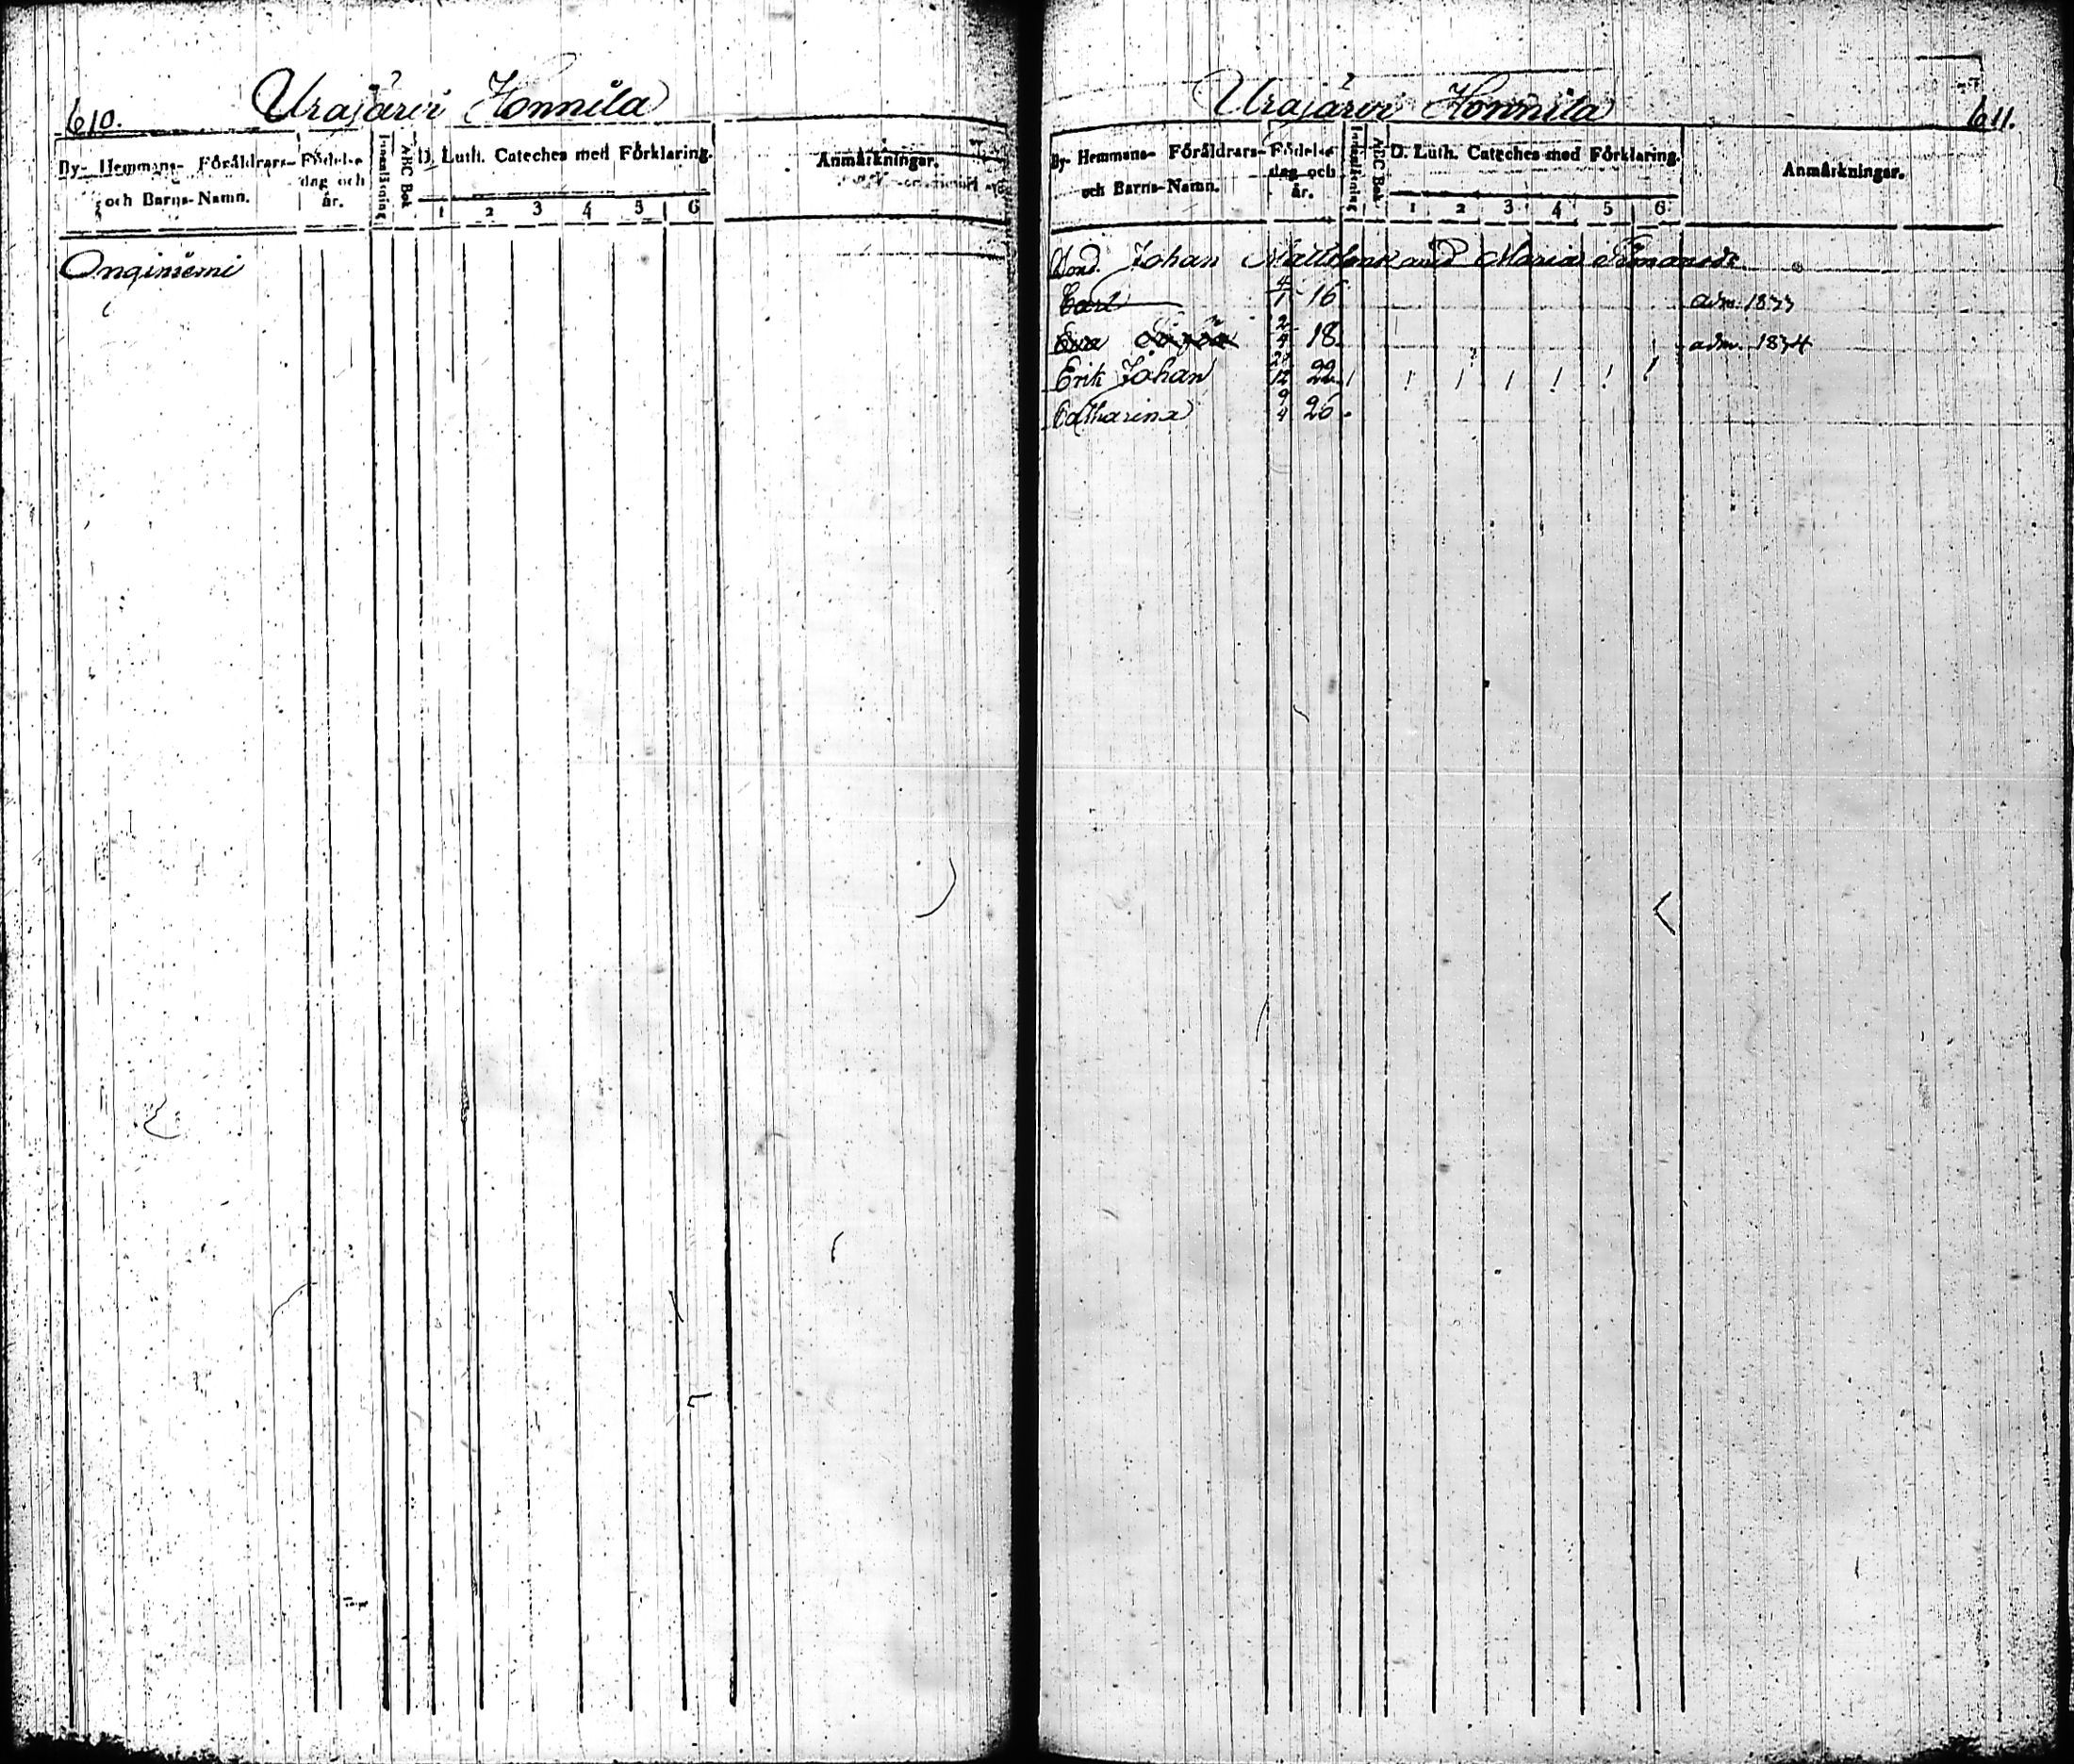 610. Urajärvi Honnila
By- Hemmans- Föräldrars- och Barns-Namn. Födelse dag och år. Innanläsning ABC Bok D. Luth. Cateches med Förklaring. 1 2 3 4 5 6 Anmärkningar.
Onginiemi
Urajärvi Honnila 611.
By- Hemmans- Föräldrars- och Barns-Namn. Födelse dag och år. Innanläsning ABC Bok D. Luth. Cateches med Förklaring. 1 2 3 4 5 6 Anmärkningar.
Johan Maria
Carl 4/1 16 adm. 1833
Eva 2/4 18 adm. 1834
Erik Johan 28/12 22
Catharina 9/4 26